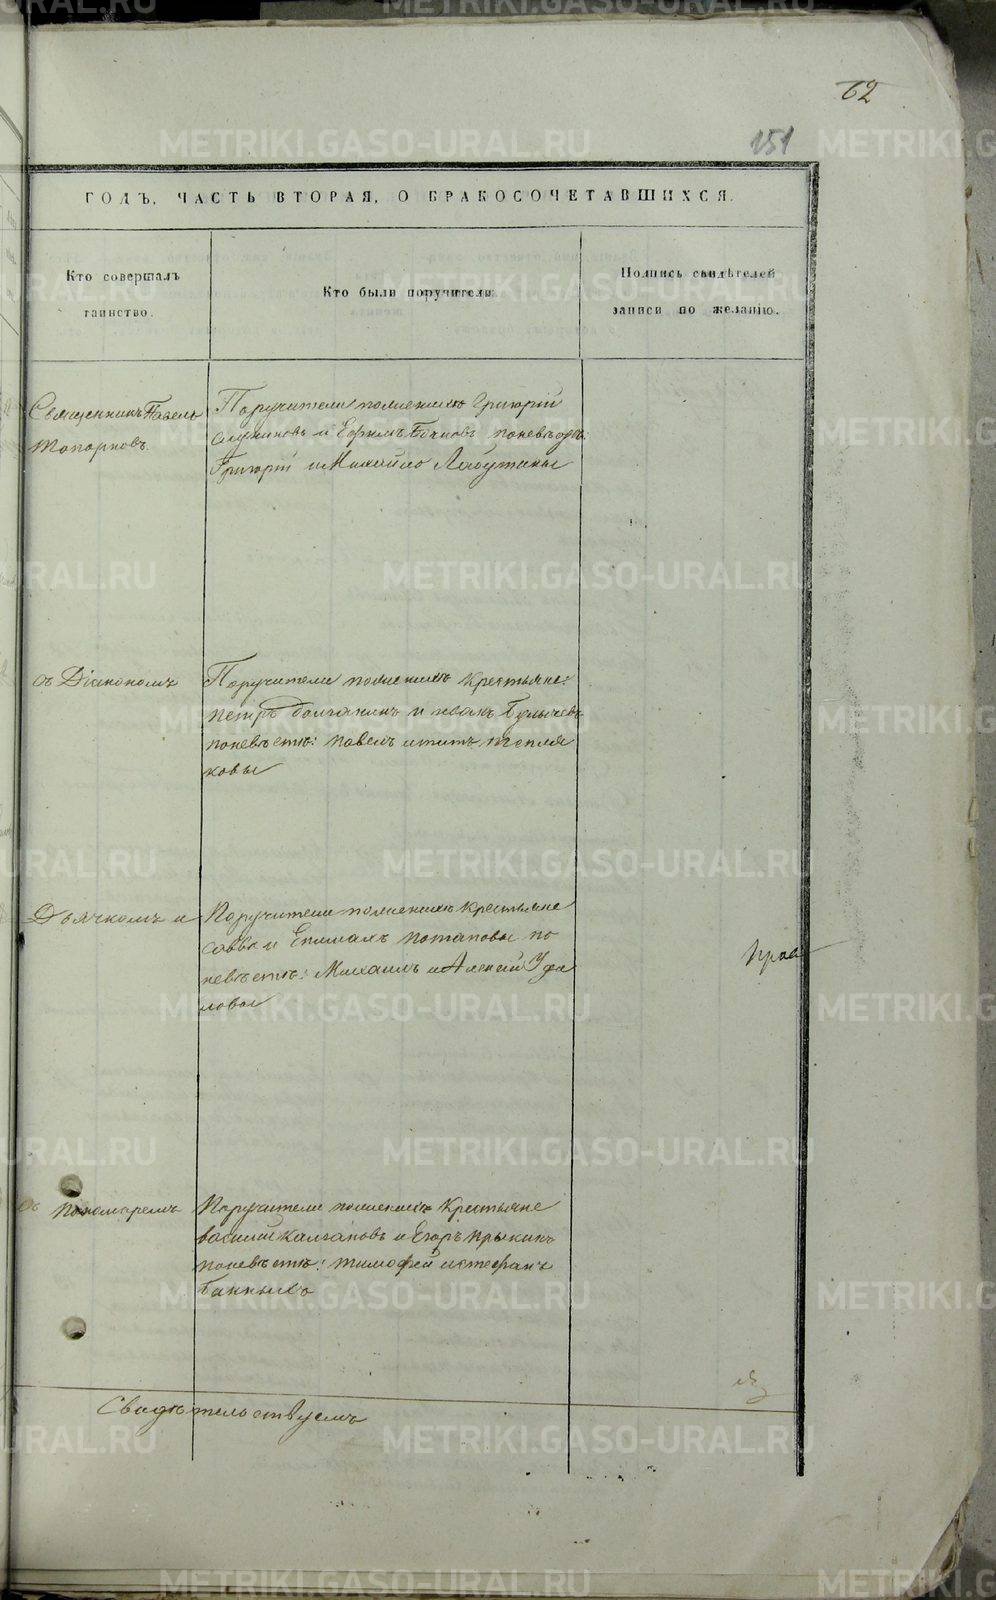 62
151
ГОДЪ, ЧАСТЬ ВТОРАЯ, О БРАКОСОЧЕТАВШИХСЯ.
Кто совершалъ
таинство.
Кто были поручители.
Подпись свидѣтелей
записи по желанію.
Священникъ Павелъ
Топорковъ.
Поручители по женихѣ Григорій
и Ефимъ Бочковъ по невѣстѣ:
Григорій и Михайло Лабутины
съ Діакономъ
Поручители по женихѣ крестьяне:
Петръ и Иванъ Булычевъ
по невѣстѣ: Павелъ и Титъ Шепеля
ковы
Дьячкомъ и
Поручители по женихѣ крестьяне
Савва и Епимахъ Потаповы по
невѣстѣ: Михаилъ и Алексѣй Уфа
ловы
съ Пономаремъ
Поручители по женихѣ крестьяне
Василій Калгановъ и Егоръ Прыкинъ
по невѣстѣ: Тимофей и Стефанъ
Банныхъ
Свидѣтельствуемъ
METRIKI.GASO-URAL.RU